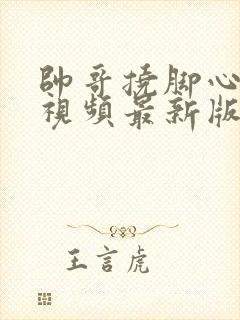 帥哥撓脚心
視頻最新版
王言虎